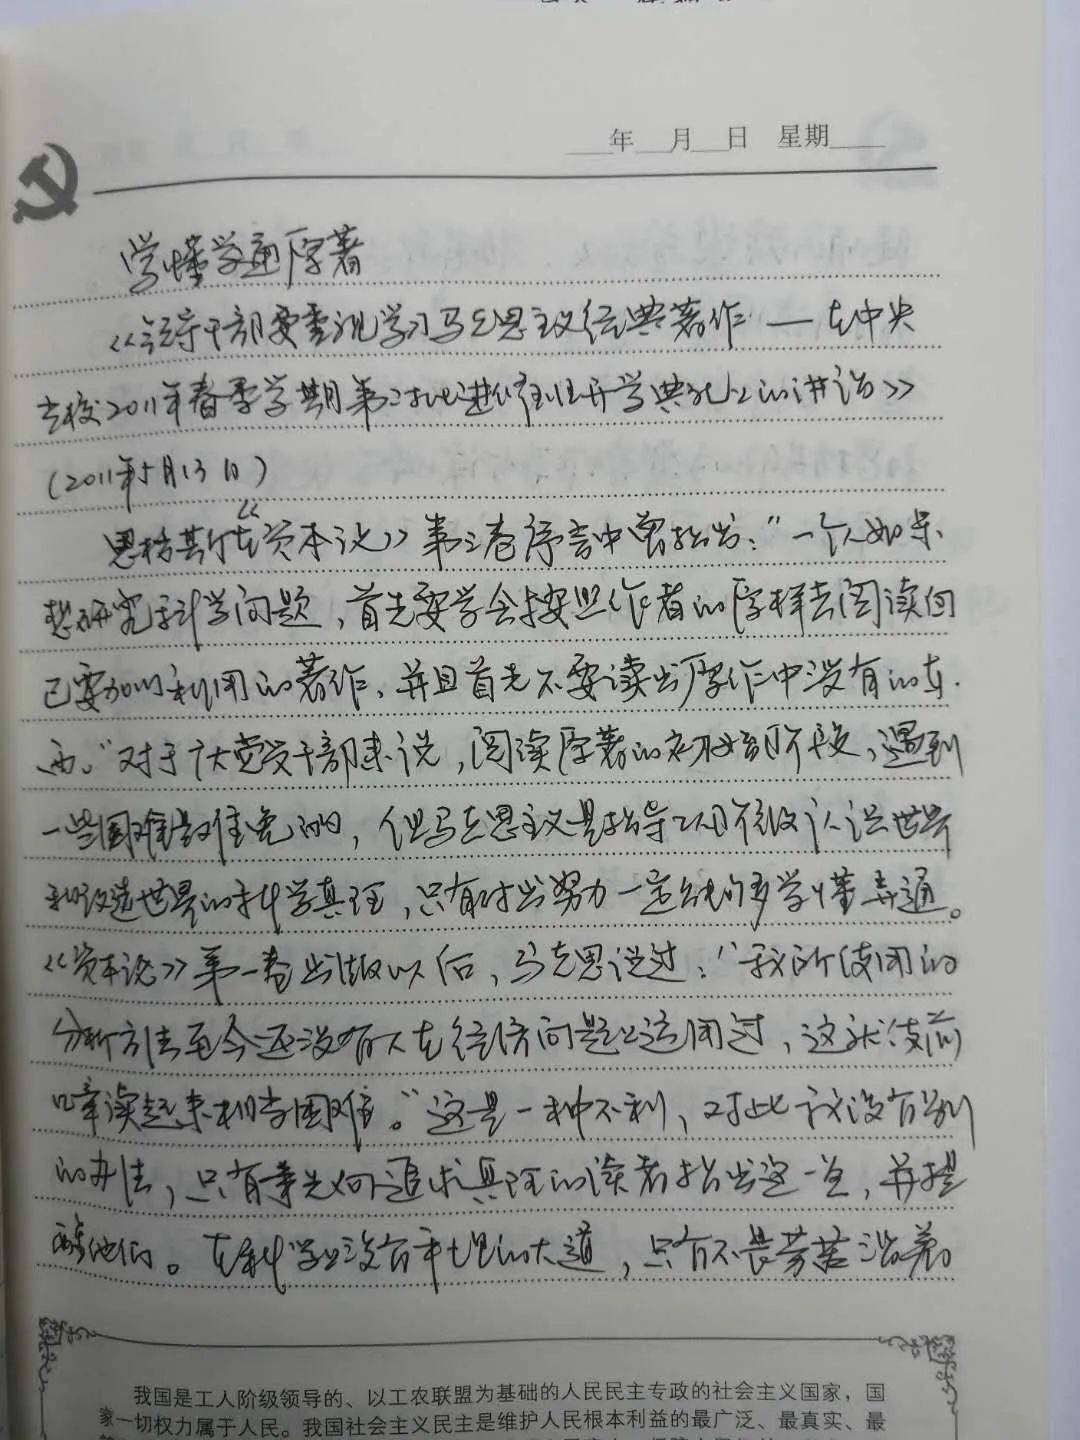 年 月 日 星期
学懂学通原著
《领导干部要重视学习马克思主义经典著作——在中央
党校2011年春季学期第二批进修班开学典礼上的讲话》
(2011年5月13日)
恩格斯在《资本论》第三卷序言中曾指出:“一个人如果
想研究科学问题,首先要学会按照作者的原样去阅读自
己要加以利用的著作,并且首先不要读出原作中没有的东
西。”对于广大党员干部来说,阅读原著的初始阶段,遇到
一些困难是难免的,但马克思主义是指导我们认识世界
和改造世界的科学真理,只有付出努力一定能够学懂弄通。
《资本论》第一卷出版以后,马克思说过:“我所使用的
分析方法至今还没有人在经济问题上运用过,这就使前
几章读起来相当困难。”这是一种不利,对此我没有别
的办法,只有事先向追求真理的读者指出这一点,并提
醒他们。在科学上没有平坦的大道,只有不畏劳苦沿着
我国是工人阶级领导的、以工农联盟为基础的人民民主专政的社会主义国家,国
家一切权力属于人民。我国社会主义民主是维护人民根本利益的最广泛、最真实、最